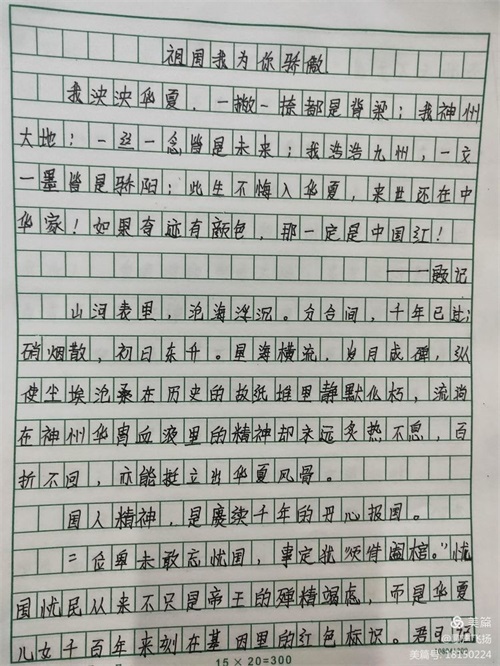 祖国我为你骄傲
我泱泱华夏，一撇一捺都是脊梁；我神州
大地；一丝一念皆是未来；我浩浩九州，一文
一墨皆是骄阳；此生不悔入华夏，来世还在中
华家！如果奇迹有颜色，那一定是中国红！
——题记
山河表里，沧海浮沉。分合间，千年已过；
硝烟散，初日东升。星海横流，岁月成碑，纵
使尘埃沧桑在历史的故纸堆里静默化朽，流淌
在神州华胄血液里的精神却永远炙热不息，百
折不回，亦能挺立出华夏风骨。
国人精神，是赓续千年的丹心报国。
"位卑未敢忘忧国，事定犹须待阖棺。"忧
国忧民从来不只是帝王的殚精竭虑，而是华夏
儿女千百年来刻在基因里的红色标识。君可见
15×20=300
美篇
美篇号: 18150224